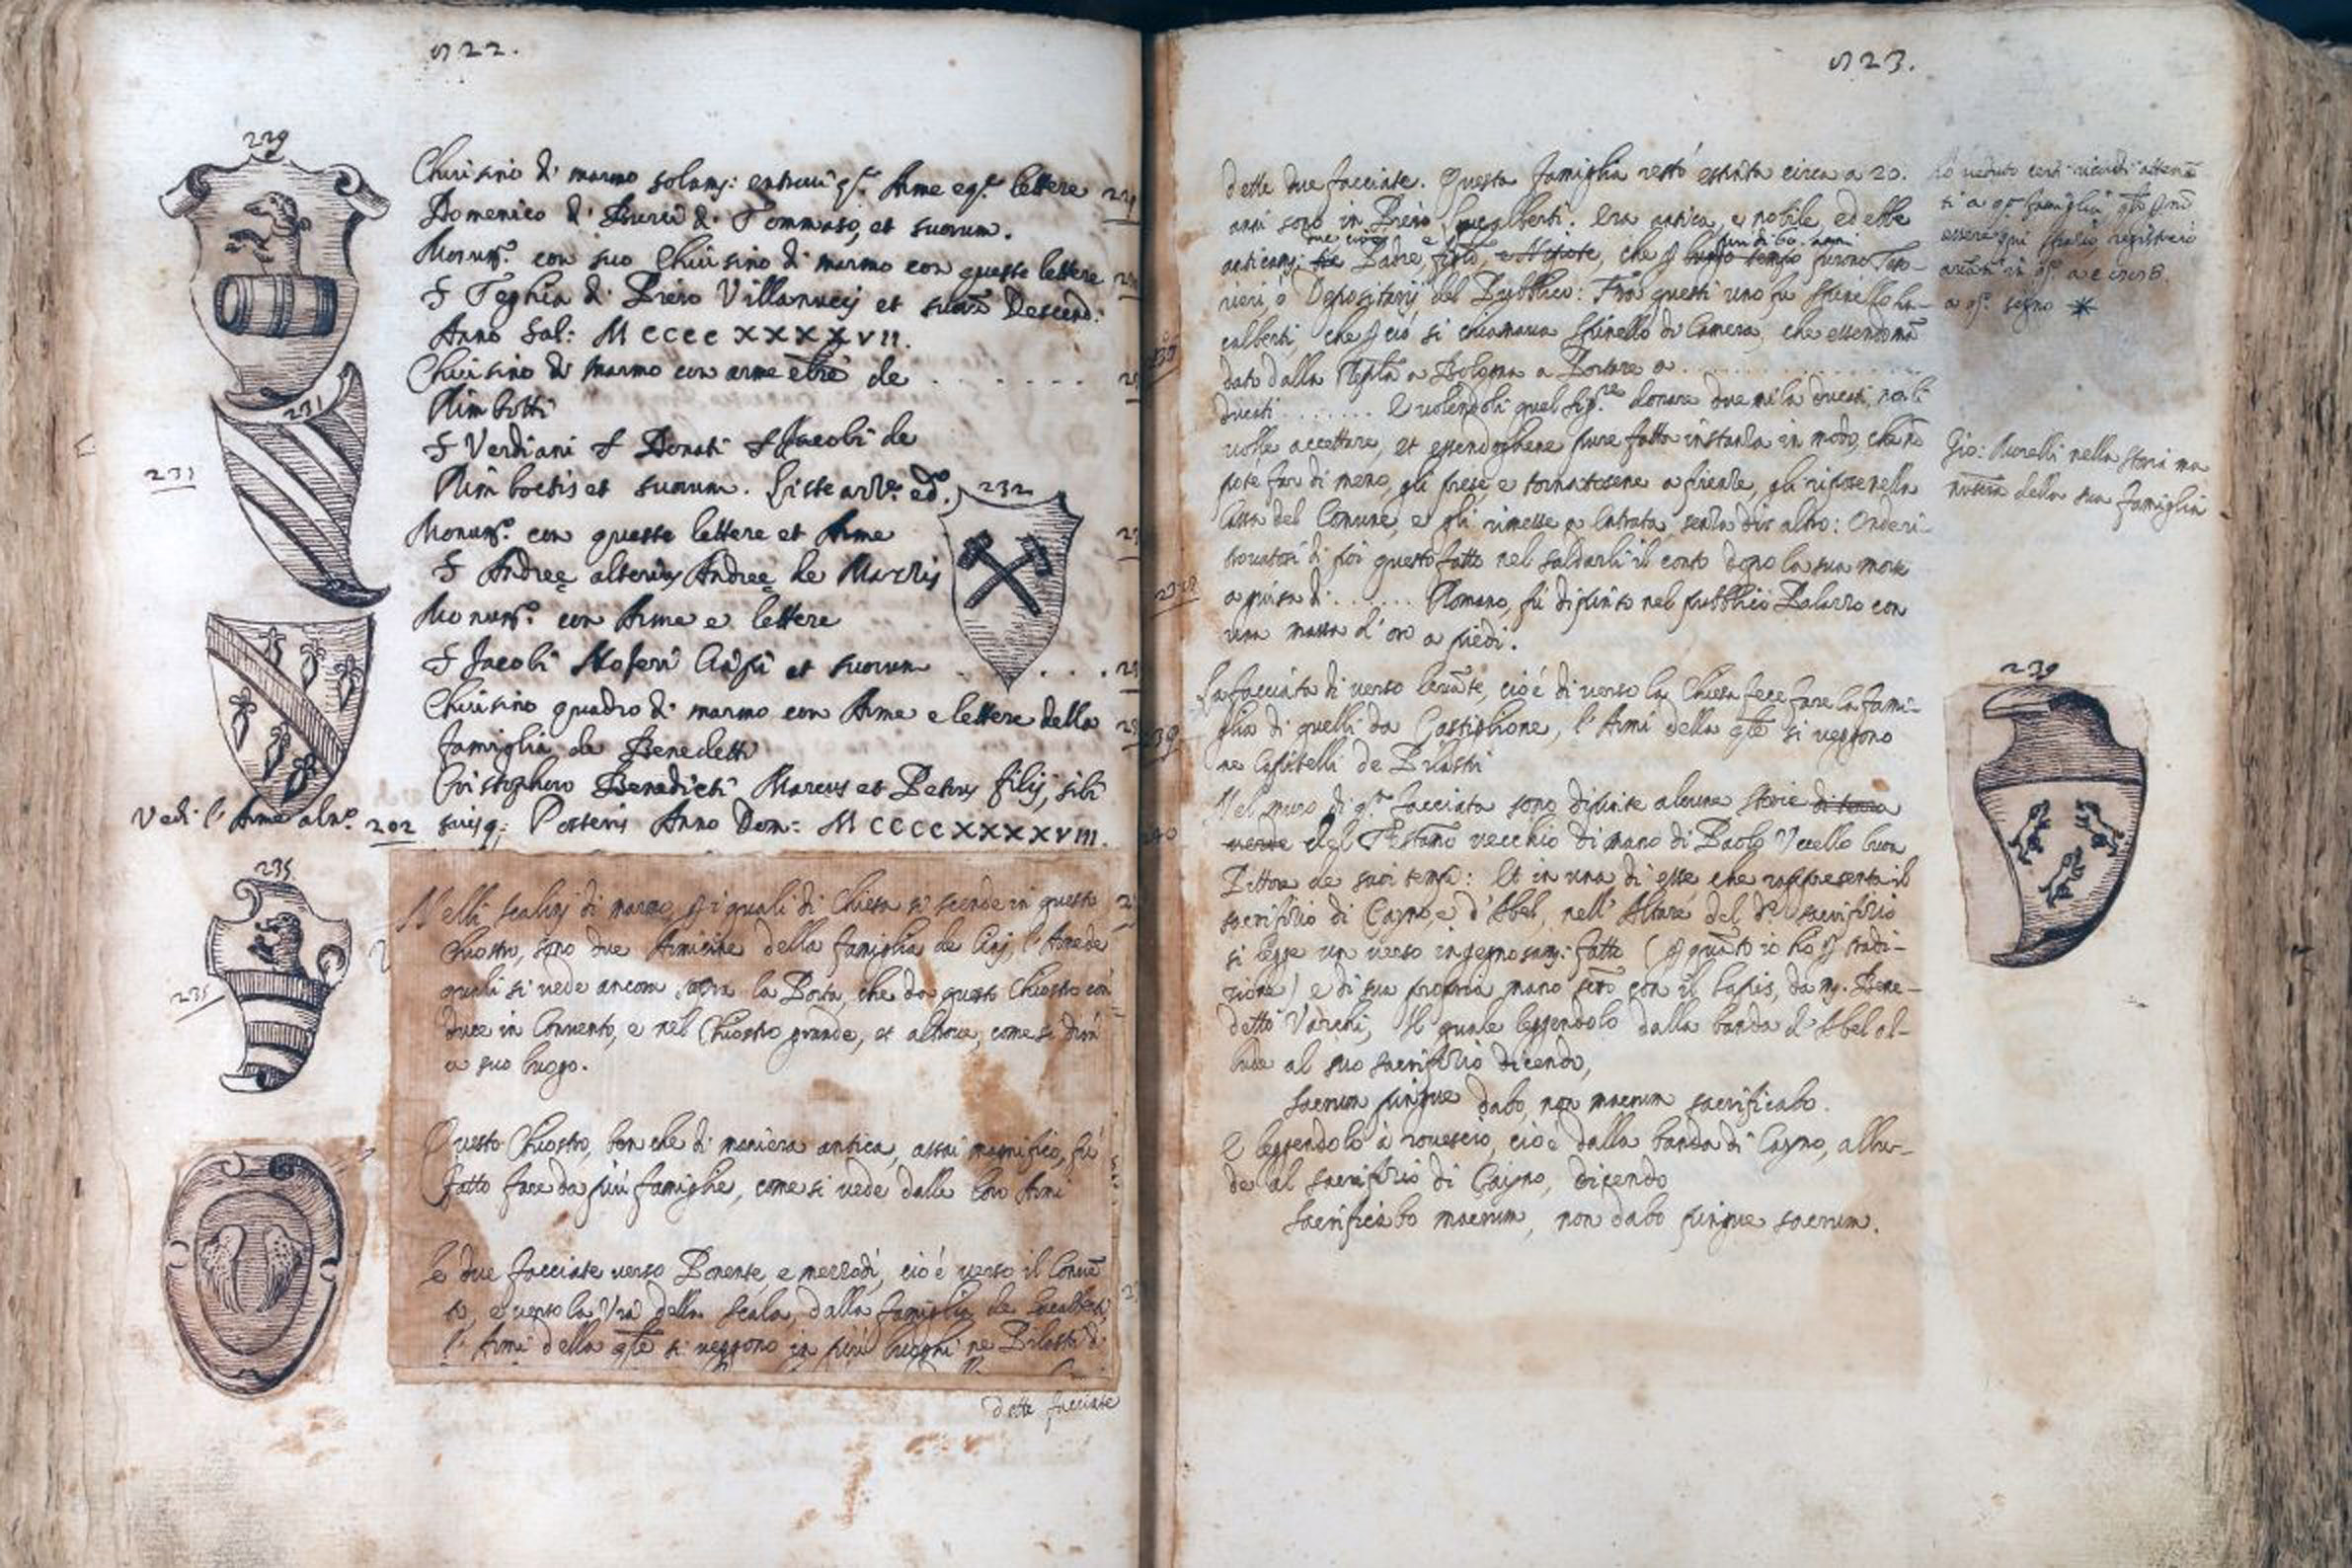 522.
229
Chiusino di marmo solamᵗ: entrovi qᵃ Arme e qᵉ lettere 229
Domenico di Pierò di Tommaso, et suorum.
Monumᵗᵒ con suo Chiusino di marmo con queste lettere
S Teghia di Piero Villanuzij et suoȓ Descend:
Anno Sal: M CCCC XXXXVII.
Chiusino di marmo con arme et lrē de . . . . . .
Rimbotti
231
S Verdiani S Donati S Jacobi de
231
Rimboctis et suorum.
232
Monumᵗᵒ con queste lettere et Arme
S Andreę alterius Andreę de
Monumᵗᵒ con Arme e lettere
S Jacobi et suorum . . . .
Chiusino quadro di marmo con Arme e lettere della
famiglia de Benedetti
Cristophoro Benedicti Marcus et Petrus filij, sibi
Vedi l'Arme al nᵒ 202
suisq; Posteris Anno Dom: M CCCC XXXXVIII.
235
Nelli scalini di marmo p i quali di Chiesa si scende in questo
Chiostro, sono due Armicine della famiglia de Cioj, l'Arme de
235
quali si vede ancora sopra la Porta, che da questo Chiostro con-
duce in Convento, e nel Chiostro grande, et altrove, come si dirà
a suo luogo.
Questo Chiostro, ben che di maniera antica, assai magnifico, fù
fatto fare da più famiglie, come si vede dalle loro Armi
Le due facciate verso Ponente, e mezzodì, cioè verso il Convē
to, e verso la Via della Scala, dalla famiglia de Lucalberti
l'Armi della qle si veggono in più luoghi ne Pilastri di
dette facciate
523.
dette due facciate. Questa famiglia restò estinta circa a 20.
anni sono in Piero Lucalberti. Era antica, e nobile, ed ebbe
anticamᵗ: Padre, figlo, e Nipote, che p lungo tempo furno Teso-
rieri, ò Depositarij del Pubblico: Frà questi uno fu Spinello Lu-
calberti, che p ciò si chiamava Spinello di Camera, che essendo mā
dato dalla Repla a Bologna a Portare a . . . . . . . . . .
ducati . . . . . . . E volendoli quel Sigʳᵉ donare due mila ducati, non li
volle accettare, et essendogliene pure fatta instanza in modo, che nō
potè far di meno, gli prese, e tornatosene a firenze, gli ripose nella
Cassa del Comune, e gli rimesse a Entrata, senza dir altro: Onde ri-
trovatosi di poi questo fatto nel saldarli il conto dopo la sua morte
a guisa di . . . . . . Romano, fù dipinto nel pubblico Palazzo con
una massa d'oro a piedi.
La facciata di verso levāte, cioè di verso la Chiesa fece fare la fami-
glia di quelli da Castiglione, l'Armi della qle si veggono
ne Capitelli de Pilastri
Nel muro di qᵗᵃ facciata sono dipinte alcune storie di terra
verde del Testamō vecchio di mano di Paolo Uccello buon
Pittore de suoi tempi: Et in una di esse che rappresenta il
sacrifizio di Cayno, e d'Abel, nell'Altare del dᵒ sacrifizio
si legge un verso ingegnosamᵗ: fatto (p quāto io ho p tradi-
zione) e di sua propria mano scrō con il lapis, da mʳ. Bene-
detto Varchi, Il quale leggendolo dalla banda d'Abel al-
lude al suo sacrifizio dicendo,
Sacrum pingue dabo, non macrum sacrificabo.
E leggendolo à rovescio, cioè dalla banda di Cayno, allu-
de al sacrifizio di Caijno, dicendo
Sacrificabo macrum, non dabo pingue sacrum.
Ho veduto certi ricordi attenē
ti a qᵃ famiglia
essere qui spazio, registrerò
a qᵒ segno *
Gio: Morelli nella storia ma
nuscrā della sua famiglia
239
239
240